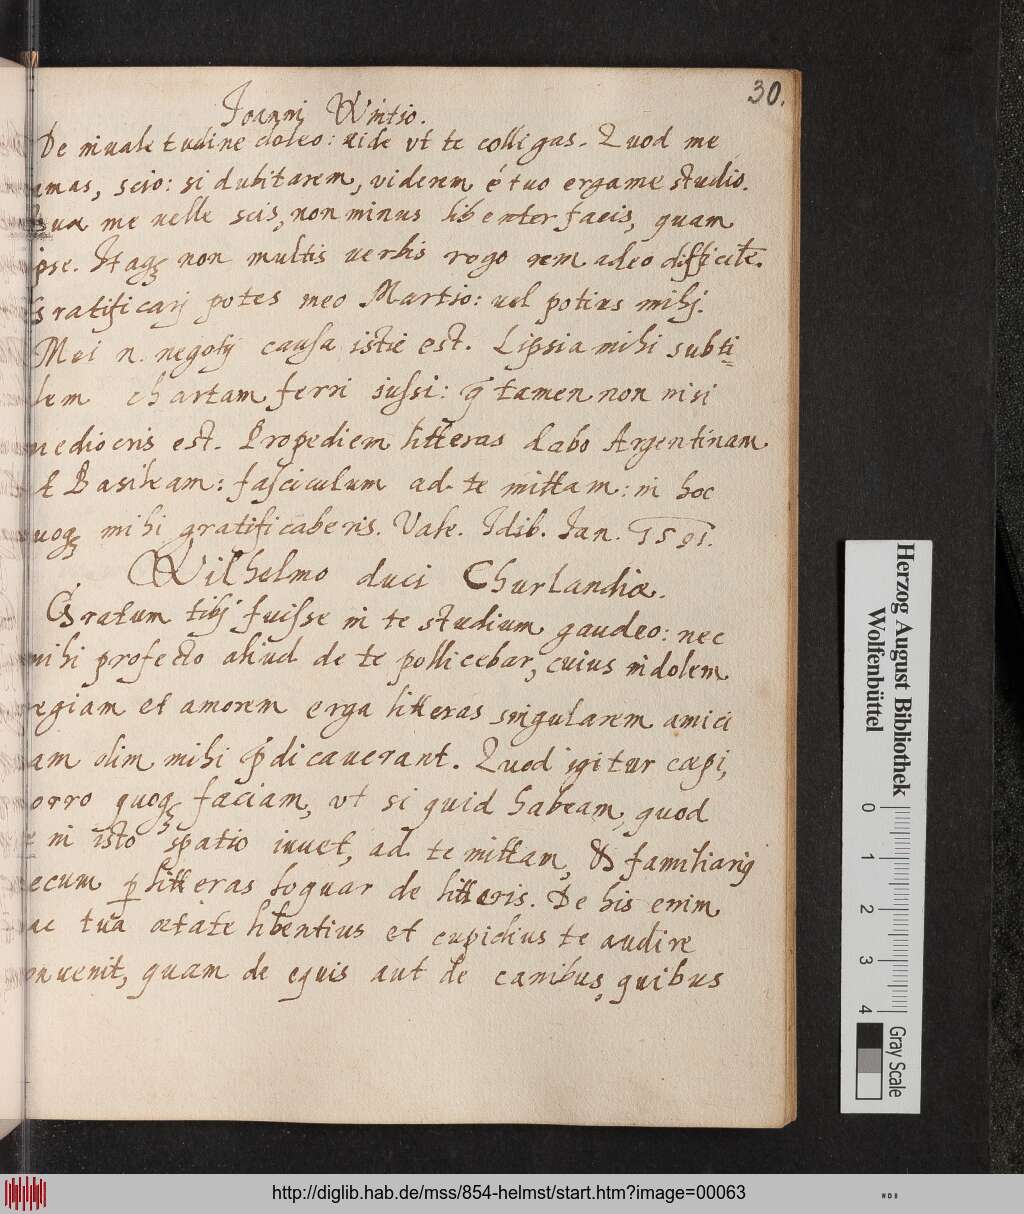 30.
Joannj Wirtio.
De inualetudine doleo: uide vt te colligas. Quod me
amas, scio: si dubitarem, viderem é tuo erga me studio.
Qua me uelle scis, non minus libenter facis, quam
ipse. Itaq non multis uerbis rogo rem adeo difficile.
Gratificarj potes meo Martio: uel potius mihj.
Mei n. negotij causa istic est. Lipsia mihi subti
lem chartam ferri iussi: q tamen non nisi
mediocris est. Propediem litteras dabo Argentinam
& Basileam: fasciculum ad te mittam: in hoc
uoq mihi gratificaberis. Vale. Idib. Jan. 1591.
Wilhelmo duci Churlandiæ.
Gratum tibj fuisse in te studium gaudeo: nec
mihi profecto aliud de te pollicebar, cuius indolem
regiam et amorem erga litteras singularem amici
am olim mihi pdicauerant. Quod igitur cæpi,
orro quoq faciam, vt si quid habeam, quod
e in isto spatio iuuet, ad te mittam, & familiarig
ecum p litteras loquar de litteris. De his enim
ac tua ætate libentius et cupidius te audire
onuenit, quam de equis aut de canibus, quibus
Herzog August Bibliothek
Wolfenbüttel
0 1 2 3 4
Gray Scale
http://diglib.hab.de/mss/854-helmst/start.htm?image=00063
WDB